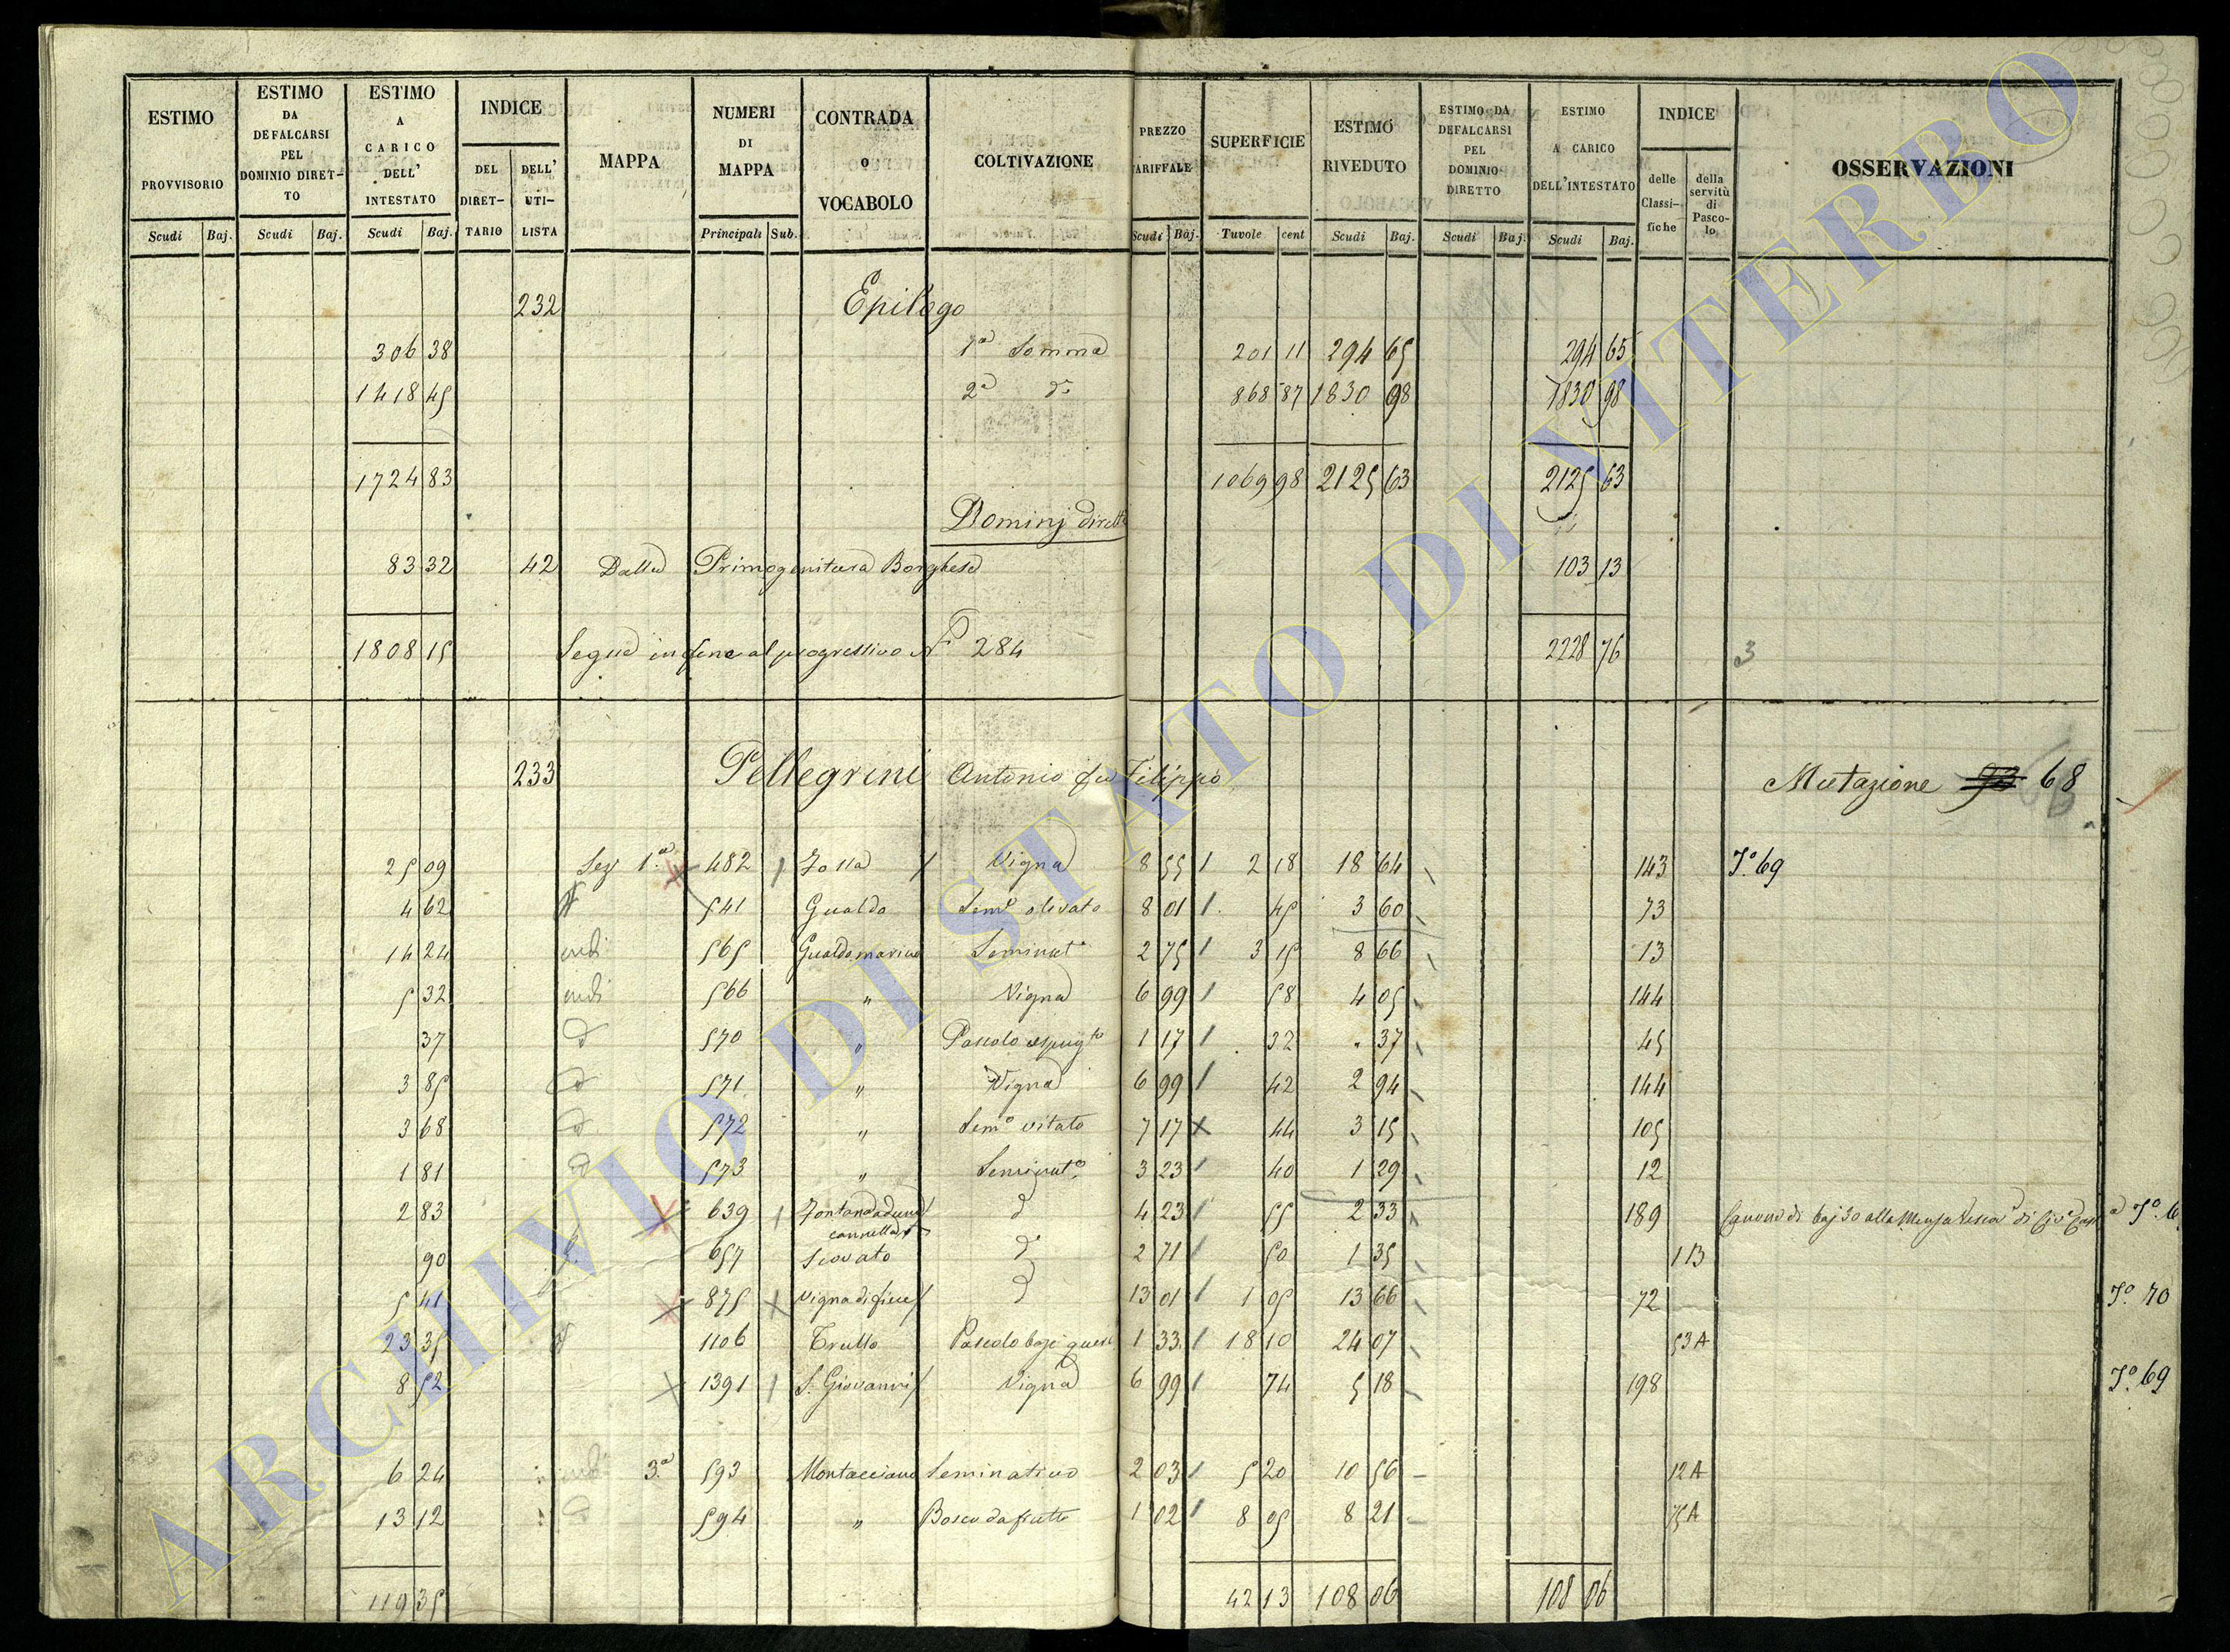 ESTIMO PROVVISORIO
ESTIMO DA DEFALCARSI PEL DOMINIO DIRETTO
ESTIMO A CARICO DELL' INTESTATO
INDICE
DEL DIRETTARIO
DELL' UTILISTA
MAPPA
NUMERI DI MAPPA
CONTRADA o VOCABOLO
COLTIVAZIONE
PREZZO TARIFFALE
SUPERFICIE
ESTIMO RIVEDUTO
ESTIMO DA DEFALCARSI PEL DOMINIO DIRETTO
ESTIMO A CARICO DELL'INTESTATO
INDICE
delle Classifiche
della servitù di Pascolo
OSSERVAZIONI
Scudi Baj. Scudi Baj. Scudi Baj. Principali Sub. Scudi Baj. Tavole cent Scudi Baj. Scudi Baj. Scudi Baj.
232 Epilogo
306 38 1a Somma 201 11 294 65 294 65
1418 45 2a do 868 87 1830 98 1830 98
1724 83 1069 98 2125 63 2125 63
Dominj diretti
83 32 42 Dalla Primogenitura Borghese 103 13
1808 15 Segue in fine al progressivo No 284 2228 76 3
233 Pellegrini Antonio fu Filippo Mutazione 68
25 09 Sez 1.a 482 Vigna 8 55 2 18 18 64 143 69
4 62 541 Gualdo Semo olivato 8 01 45 3 60 73
14 24 565 Seminato 2 75 3 15 8 66 13
5 32 566 " Vigna 6 99 58 4 05 144
37 570 " Pascolo 1 17 32 " 37 45
3 85 571 " Vigna 6 99 42 2 94 144
3 68 572 " Semo vitato 7 17 44 3 15 105
1 81 573 " Seminato 3 23 40 1 29 12
2 83 639 cannella d 4 23 55 2 33 189 Canone di baj 30 alla Mensa
90 657 Scovato d 2 71 50 1 35 113
5 41 875 Vigna di d 13 01 1 05 13 66 72 70
23 35 1106 Trullo Pascolo 1 33 18 10 24 07 53A
8 52 1391 S. Giovanni Vigna 6 99 74 5 18 198 69
6 24 3.a 593 Seminativo 2 03 5 20 10 56 12A
13 12 594 " Bosco da frutto 1 02 8 05 8 21
119 35 42 13 108 06 108 06
ARCHIVIO DI STATO DI VITERBO